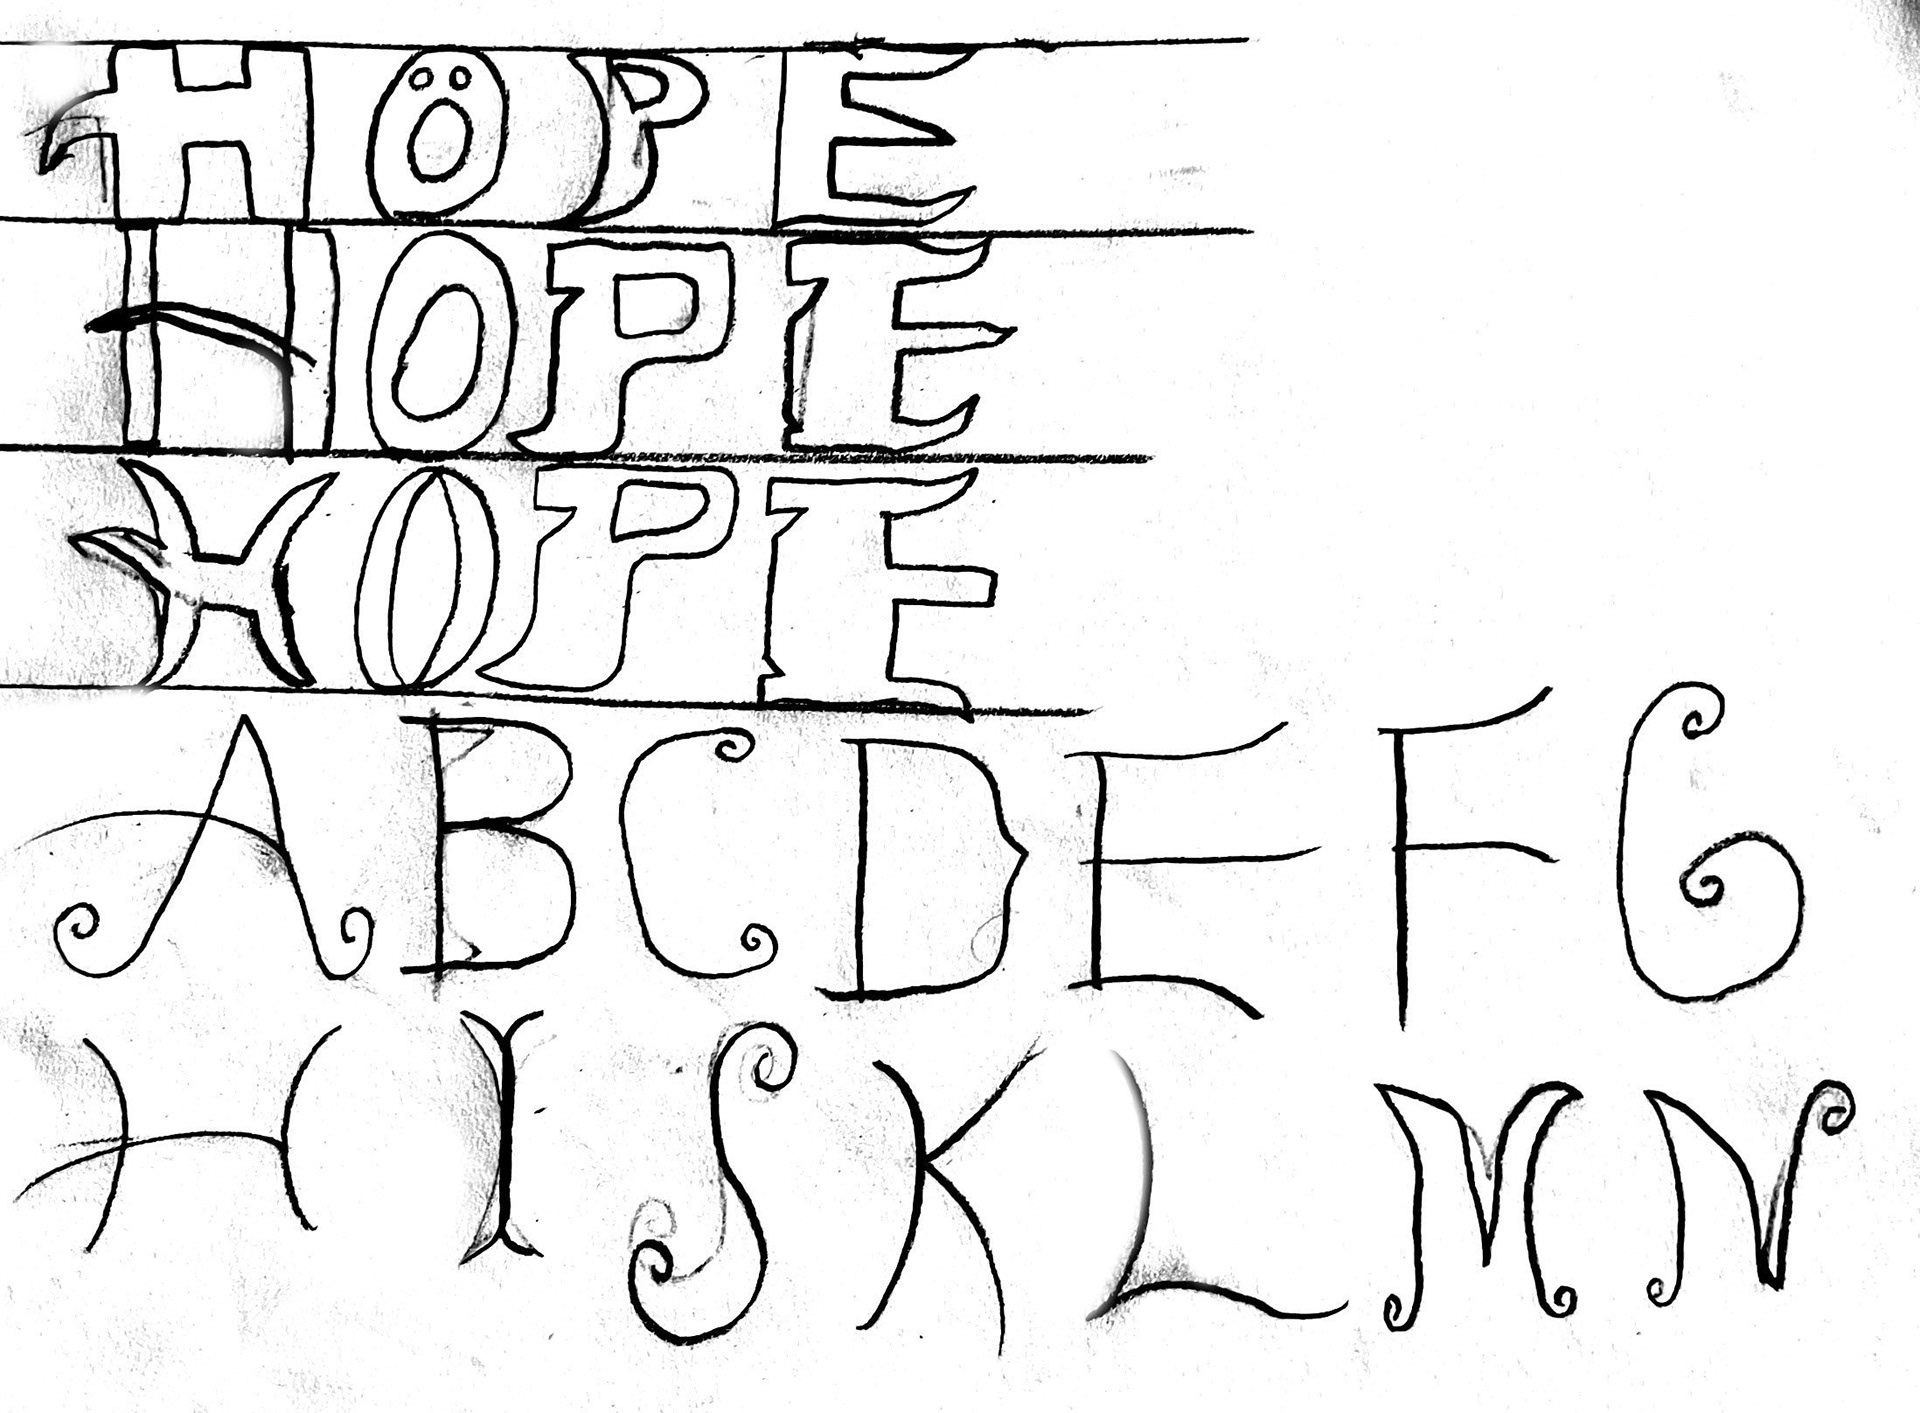 HOPE
HOPE
HOPE
A B C D E F G
H I J K L M N